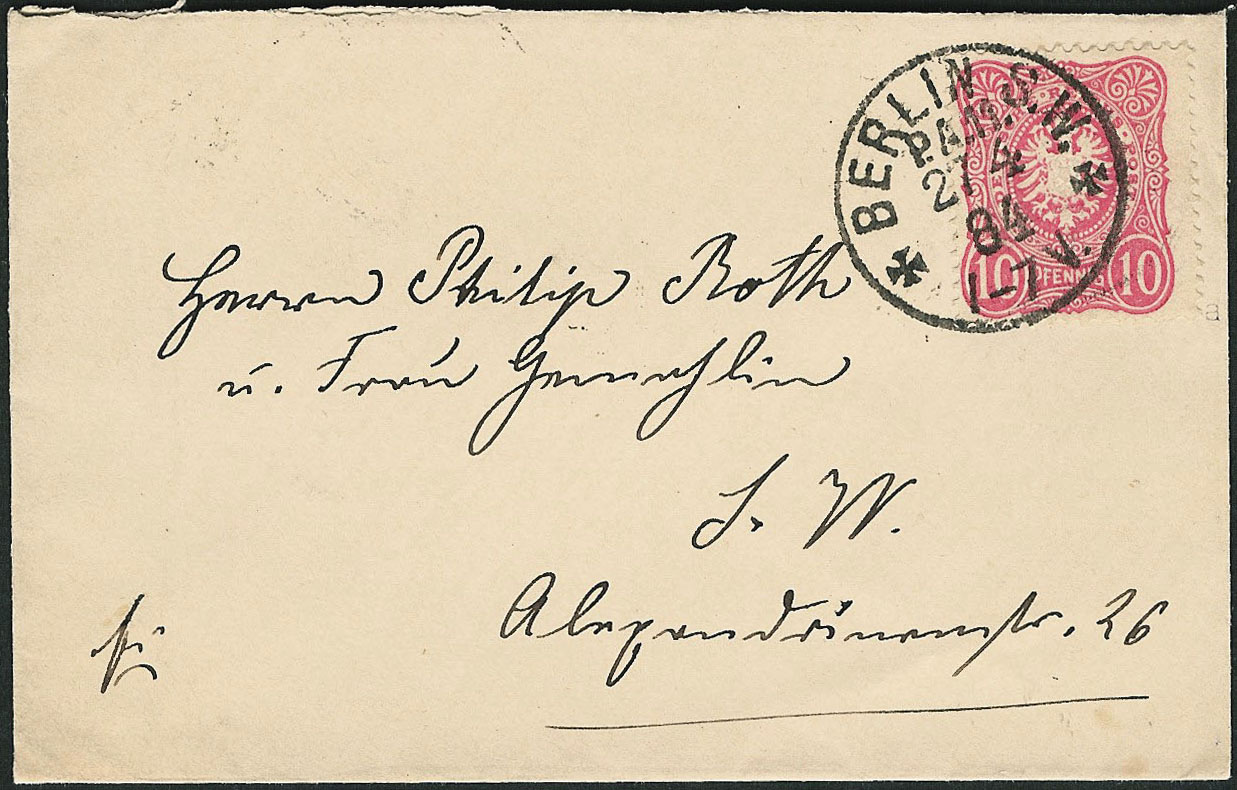 BERLIN S.W.
P.A.11.
27 4
84
1-7V.
10 PFENNIG 10
Herrn Philip Roth
u. Frau Gemahlin
S. W.
Alexandrinenstr. 26
a